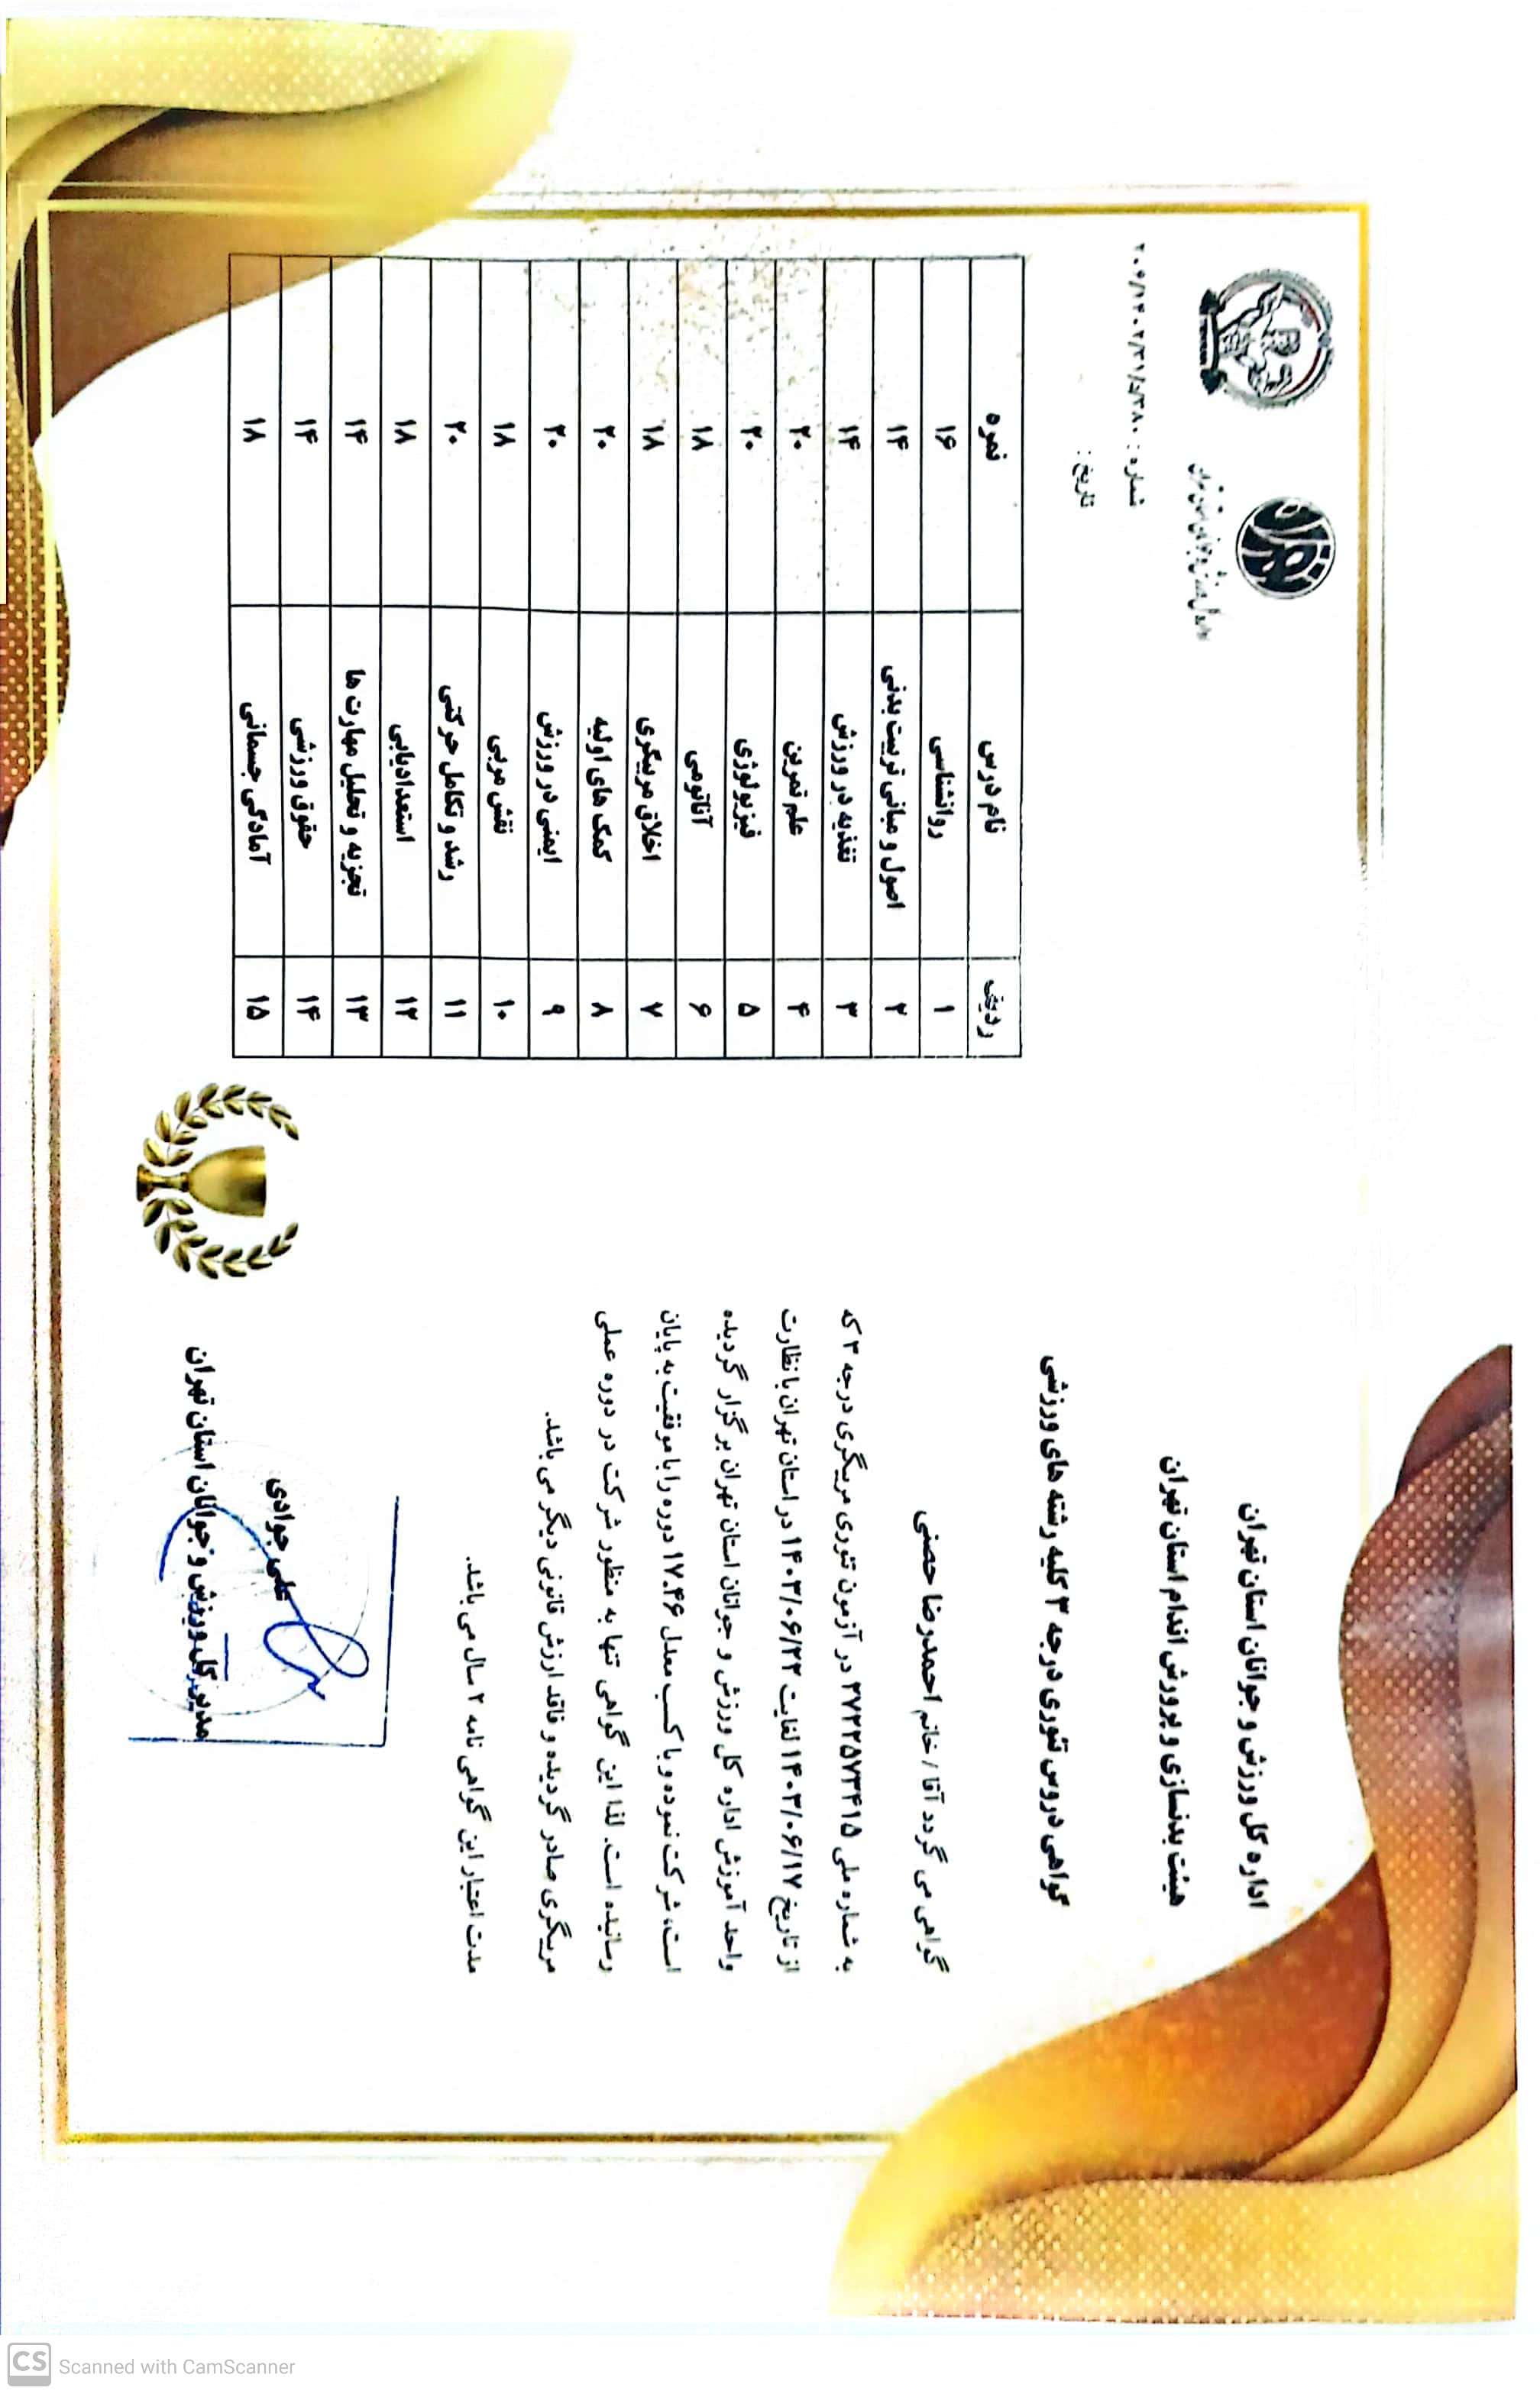 اداره کل ورزش و جوانان استان تهران
هیئت بدنسازی و پرورش اندام استان تهران
گواهی دروس تئوری درجه ۳ کلیه رشته های ورزشی
گواهی می گردد آقا / خانم احمدرضا حصنی
به شماره ملی ۲۷۲۲۵۷۳۴۱۵ در آزمون تئوری مربیگری درجه ۳ که
از تاریخ ۱۴۰۳/۰۶/۱۷ لغایت ۱۴۰۳/۰۶/۲۲ در استان تهران با نظارت
واحد آموزش اداره کل ورزش و جوانان استان تهران برگزار گردیده
است، شرکت نموده و با کسب معدل ۱۷.۴۶ دوره را با موفقیت به پایان
رسانیده است. لذا این گواهی تنها به منظور شرکت در دوره عملی
مربیگری صادر گردیده و فاقد ارزش قانونی دیگر می باشد.
مدت اعتبار این گواهی نامه ۲ سال می باشد.
علی جوادی
مدیر کل ورزش و جوانان استان تهران
اداره کل ورزش و جوانان استان تهران
شماره :
تاریخ :
ردیف نام درس نمره
۱ روانشناسی ۱۶
۲ اصول و مبانی تربیت بدنی ۱۴
۳ تغذیه در ورزش ۱۴
۴ علم تمرین ۲۰
۵ فیزیولوژی ۲۰
۶ آناتومی ۱۸
۷ اخلاق مربیگری ۱۸
۸ کمک های اولیه ۲۰
۹ ایمنی در ورزش ۲۰
۱۰ نقش مربی ۱۸
۱۱ رشد و تکامل حرکتی ۲۰
۱۲ استعدادیابی ۱۸
۱۳ تجزیه و تحلیل مهارت ها ۱۴
۱۴ حقوق ورزشی ۱۴
۱۵ آمادگی جسمانی ۱۸
CS Scanned with CamScanner